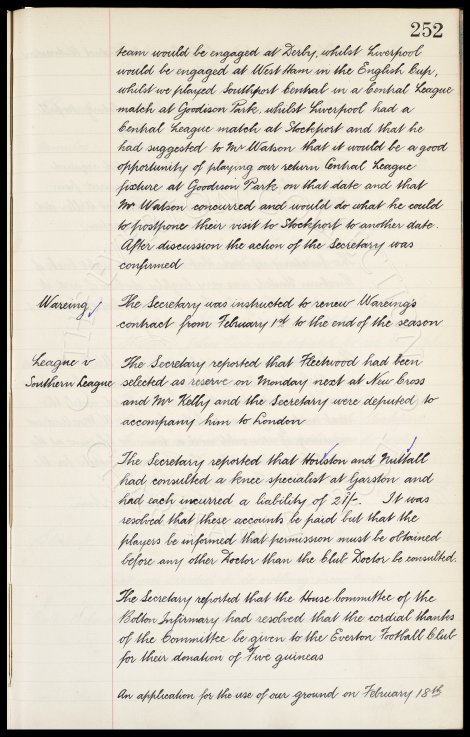 252
team would be engaged at Derby, whilst Liverpool
would be engaged at West Ham in the English Cup,
whilst we played Southport Central in a Central League
match at Goodison Park, whilst Liverpool had a
Central League match at Stockport and that he
had suggested to Mr Watson that it would be a good
opportunity of playing our return Central League
fixture at Goodison Park on that date and that
Mr Watson concurred and would do what he could
to postpone their visit to Stockport to another date.
After discussion the action of the Secretary was
confirmed
Wareing
The Secretary was instructed to renew Wareing's
contract from February 1st to the end of the season
League v
Southern League
The Secretary reported that Fleetwood had been
selected as reserve on Monday next at New Cross
and Mr Kelly and the Secretary were deputed to
accompany him to London
The Secretary reported that Houston and Nuttall
had consulted a knee specialist at Garston and
had each incurred a liability of 21/-. It was
resolved that these accounts be paid but that the
players be informed that permission must be obtained
before any other Doctor than the Club Doctor be consulted.
The Secretary reported that the House Committee of the
Bolton Infirmary had resolved that the cordial thanks
of the Committee be given to the Everton Football Club
for their donation of Five guineas
An application for the use of our ground on February 18th